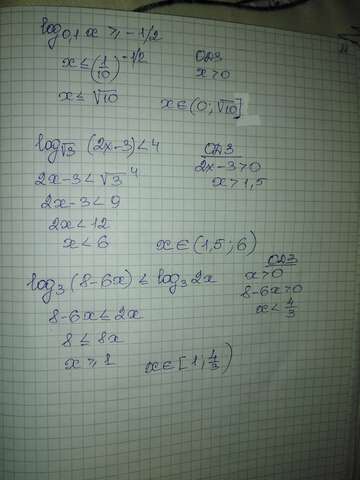 log₀,₁ x ⩾ -1/2
ОДЗ
x ≤ (1/10)^(-1/2)
x > 0
x ≤ √10
x ∈ (0; √10]
log_√3 (2x-3) < 4
ОДЗ
2x-3 < √3⁴
2x-3 > 0
x > 1,5
2x-3 < 9
2x < 12
x < 6
x ∈ (1,5; 6)
log₃ (8-6x) ≤ log₃ 2x
ОДЗ
x > 0
8-6x > 0
x < 4/3
8-6x ≤ 2x
8 ≤ 8x
x ⩾ 1
x ∈ [1; 4/3)